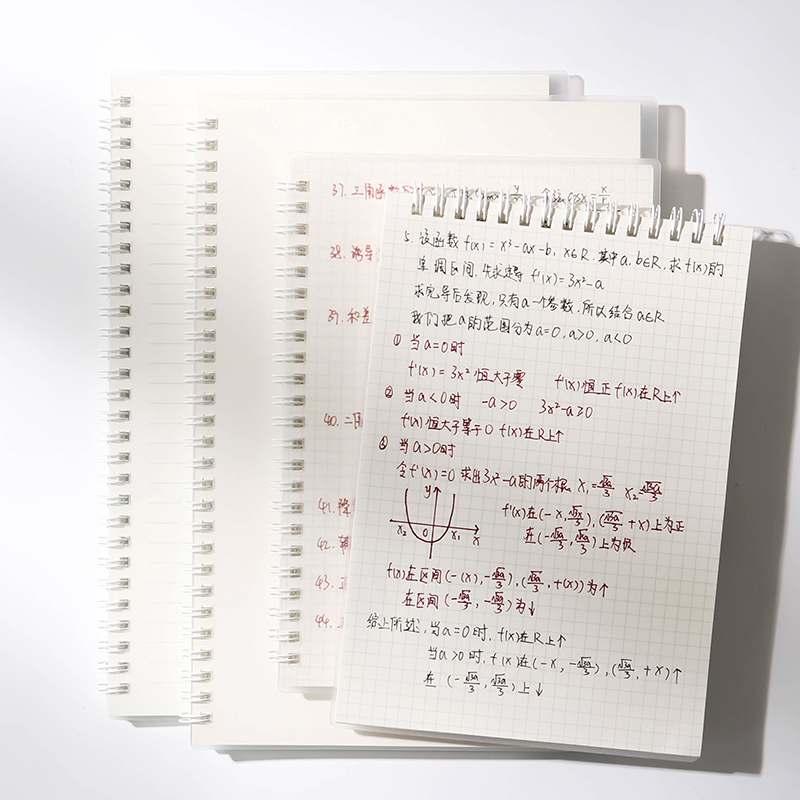 37. 三角函数
38. 诱导
39. 和差
40. 二
41. 降
42. 辅
43. 正
44.
5. 该函数 f(x) = x³-ax-b, x∈R. 其中a, b∈R, 求f(x)的
单调区间, 先求定导 f'(x)=3x²-a
求完导后发现, 只有a一个参数, 所以结合a∈R
我们把a的范围分为a=0, a>0, a<0
① 当a=0时
f'(x) = 3x² 恒大于零 f'(x)恒正 f(x)在R上↑
② 当a<0时 -a>0 3x²-a≥0
f'(x)恒大于等于0 f(x)在R上↑
③ 当a>0时
令f'(x)=0 求出3x²-a的两个根 x₁=√3a/3 x₂=√3a/3
y
f'(x)在(-x, √3x/3), (√3a/3 +x)上为正
x₂ 0 x₁ x
在(-√3a/3, √3a/3)上为负
f(x)在区间(-(x), -√3a/3), (√3a/3, +(x))为↑
在区间(-√3a/3, -√3a/3)为↓
综上所述, 当a=0时, f(x)在R上↑
当a>0时, f(x)在(-x, -√3a/3), (√3a/3, +x)↑
在 (-√3a/3, √3a/3)上↓